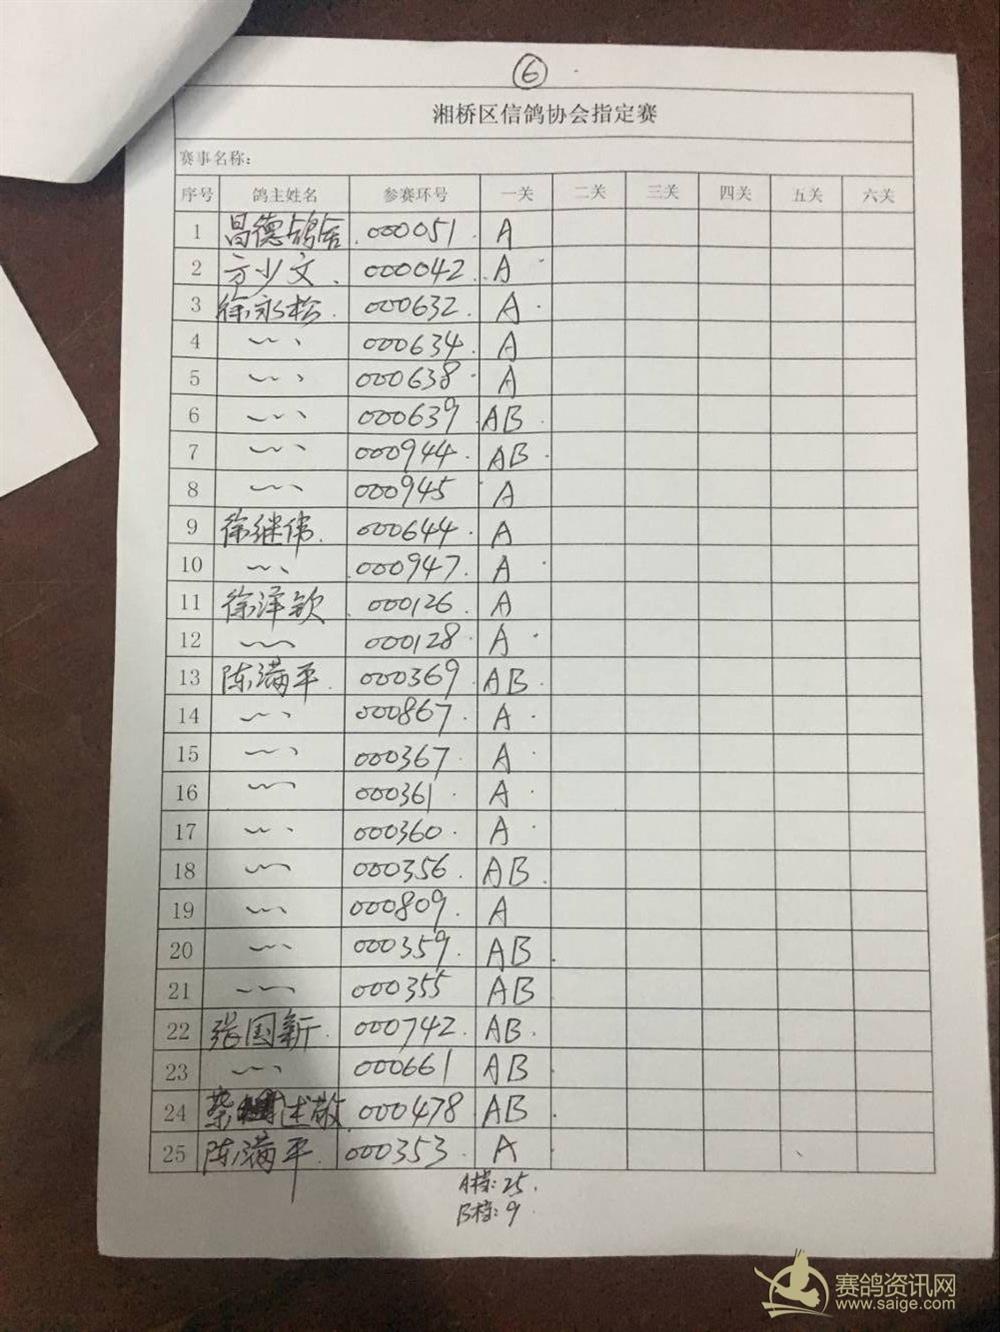 ⑥
湘桥区信鸽协会指定赛
赛事名称:
序号 鸽主姓名 参赛环号 一关 二关 三关 四关 五关 六关
1 昌德鸽舍 000051 A
2 方少文 000042 A
3 徐永松 000632 A
4 000634 A
5 000638 A
6 000639 AB
7 000944 AB
8 000945 A
9 徐继伟 000644 A
10 000947 A
11 徐泽钦 000126 A
12 000128 A
13 陈满平 000369 AB
14 000867 A
15 000367 A
16 000361 A
17 000360 A
18 000356 AB
19 000809 A
20 000359 AB
21 000355 AB
22 张国新 000742 AB
23 000661 AB
24 蔡述敬 000478 AB
25 陈满平 000353 A
A档:25
B档:9
赛鸽资讯网
www.saige.com